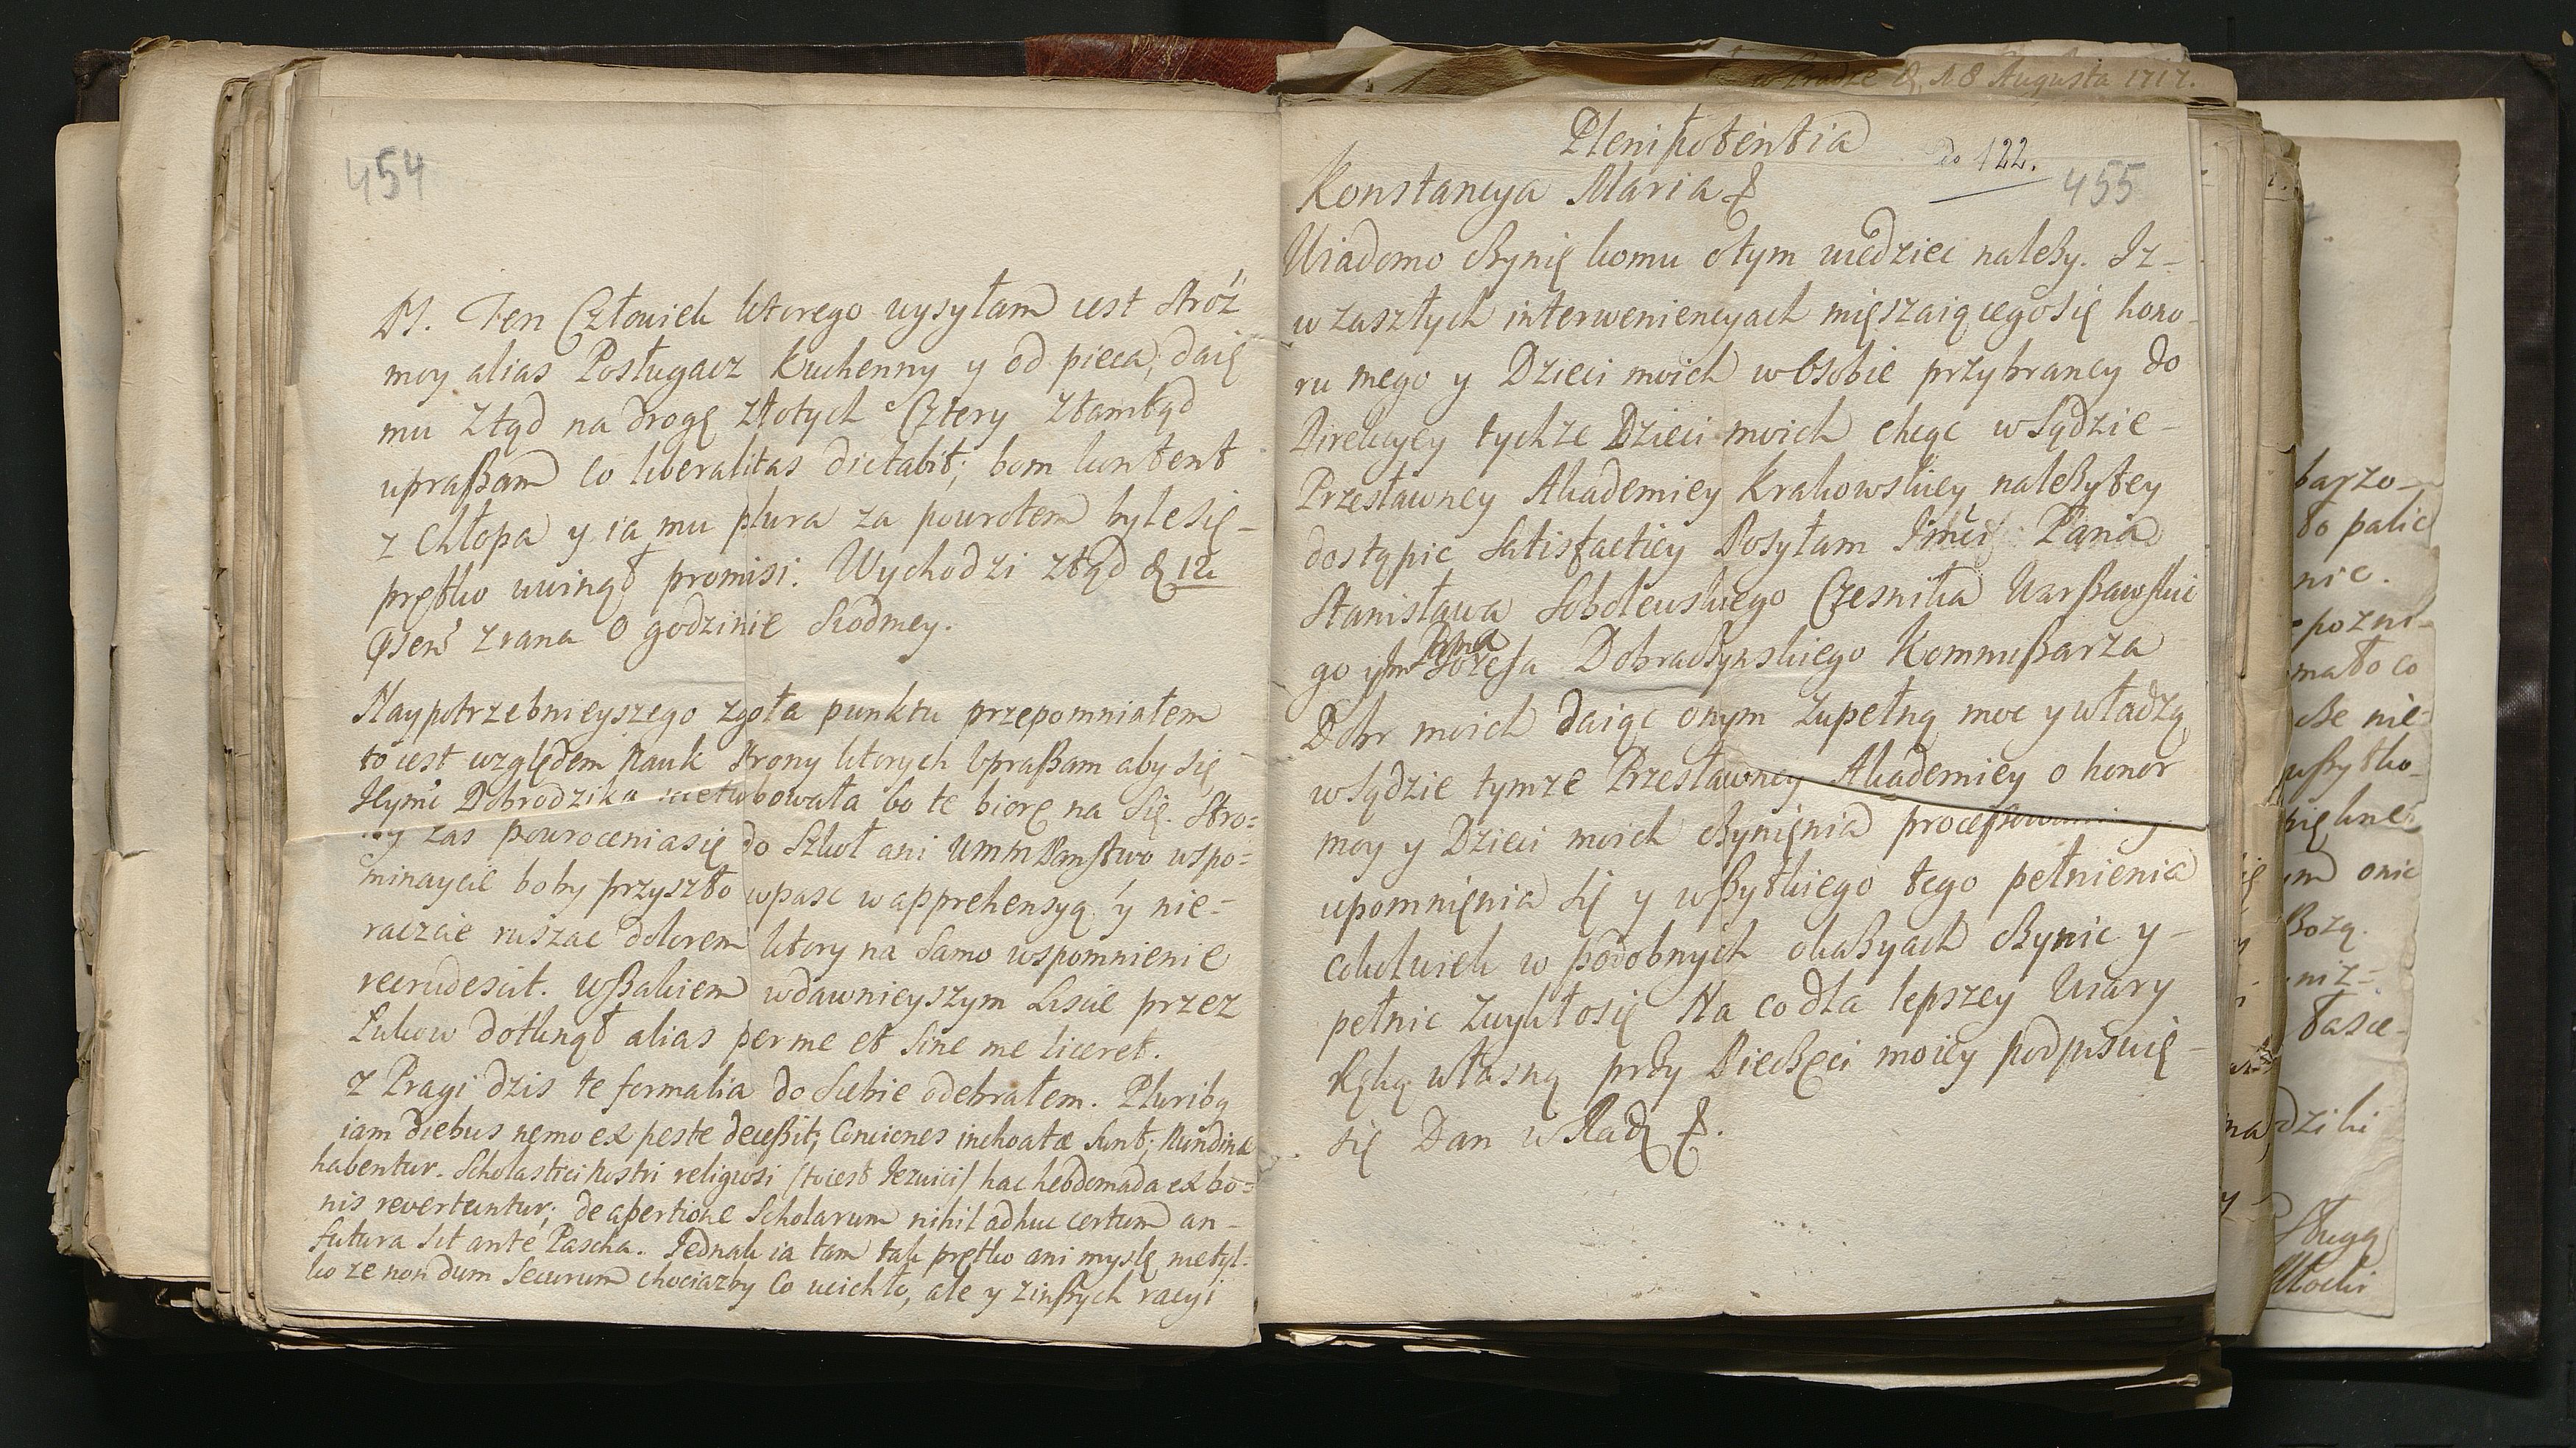 454
Ten Człowiek ktorego wysyłam iest stróż
moy alias Posługacz Kuchenny y od pieca, daię
mu ztąd na drogę złotych Cztery ztamtąd
upraßam co liberalitas dictabit; bom kontent
z Chłopa y ia mu plura za powrotem byle się
prętko uwinął promisi. Wychodzi ztąd d. 12
zrana o godzinie siodmey.
Naypotrzebnieyszego zgoła punktu przepomniałem
to iest względem Nauk strony ktorych upraßam aby się
Dobrodzika nieturbowała bo te biorę na się. Stro=
ny zas powroceniasię do Szkoł ani UMMPanstwo wspo=
minaycie boby przyszło wpasc w apprehensyą y nie=
raczcie ruszac dolorem ktory na samo wspomnienie
recrudescit. wßakiem wdawnieyszym Liscie przez
Łukow dotknął alias per me et sine me liceret.
z Pragi dzis te formalia do siebie odebrałem. Pluribq
iam diebus nemo ex peste deceßit; Conciones inchoatæ sunt; Nundinæ
habentur. Scholastici nostri religiosi /toiest Jezuici/ hac hebdomada ex bo=
nis revertuntur; de apertione Scholarum nihil adhuc certum an-
futura sit ante Pascha. Jednak ia tam tak prętko ani myslę nietyl-
ko ze non dum securum chociazby co ucichło, ale y zinßych racyi
w Pradze d. 18 Augusta 1717.
Plenipotentia
do 122.
455
Konstancya Maria
Wiadomo czynię komu otym wiedziec nalezy. Iz-
w zaszłych interweniencyach mięszaiącegosię hono-
ru mego y Dzieci moich w osobie przybraney do
Direkcyey tychze Dzieci moich chcąc w Sądzie-
Przesławney Akademiey Krakowskiey nalezytey
dostąpic Satisfactiey Posyłam Jmći Pana
Stanisława Sobolewskiego Czesnika Warßawskie
go y Jm Pana Jozefa Kommißarza
Dobr moich daiąc onym zupełną moc y władzą
w Sądzie tymze Przesławney Akademiey o honor
moy y Dzieci moich czynięnia proceßowania y
upomnięnia się y wßytkiego tego pełnienia
cokolwiek w podobnych okaßyach czynic y-
pełnic zwykłosię Na co dla lepszey Wiary
Ręką własną przy Pieczęci moiey podpisuię-
się Dan w
barzo-
to palic
nic.
mało co
nie-
wßytko-
Bozą.
niz-
dziki
Sługą